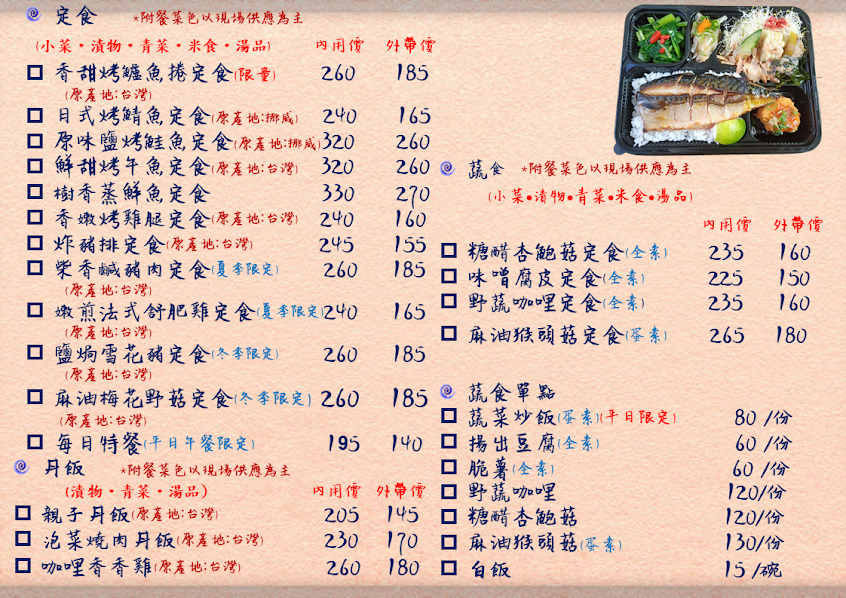 定食 *附餐菜色以現場供應為主
(小菜•漬物•青菜•米食•湯品) 內用價 外帶價
香甜烤鱸魚捲定食(限量) 260 185
(原產地:台灣)
日式烤鯖魚定食(原產地:挪威) 240 165
原味鹽烤鮭魚定食(原產地:挪威) 320 260
鮮甜烤午魚定食(原產地:台灣) 320 260
樹香蒸鮮魚定食 330 270
香嫩烤雞腿定食(原產地:台灣) 240 160
炸豬排定食(原產地:台灣) 245 155
柴香鹹豬肉定食(夏季限定) 260 185
(原產地:台灣)
嫩煎法式舒肥雞定食(夏季限定) 240 165
(原產地:台灣)
鹽焗雪花豬定食(冬季限定) 260 185
(原產地:台灣)
麻油梅花野菇定食(冬季限定) 260 185
(原產地:台灣)
每日特餐(平日午餐限定) 195 140
丼飯 *附餐菜色以現場供應為主
(漬物•青菜•湯品) 內用價 外帶價
親子丼飯(原產地:台灣) 205 145
泡菜燒肉丼飯(原產地:台灣) 230 170
咖哩香香雞(原產地:台灣) 260 180
蔬食 *附餐菜色以現場供應為主
(小菜•漬物•青菜•米食•湯品)
內用價 外帶價
糖醋杏鮑菇定食(全素) 235 160
味噌腐皮定食(全素) 225 150
野蔬咖哩定食(全素) 235 160
麻油猴頭菇定食(蛋素) 265 180
蔬食單點
蔬菜炒飯(蛋素)(平日限定) 80 /份
揚出豆腐(全素) 60 /份
脆薯(全素) 60 /份
野蔬咖哩 120/份
糖醋杏鮑菇 120/份
麻油猴頭菇(蛋素) 130/份
白飯 15 /碗